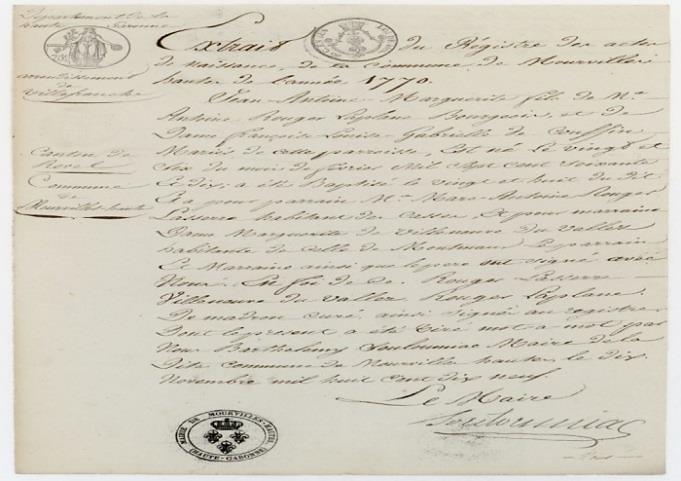 Département de la
haute Garonne
arrondissement
de
Villefranche
Canton de
Revel
Commune
de
Mourvilles hautes
Extrait du Régistre des actes
de naissance, de la Commune de Mourvilles
hautes de l'année 1770.
Jean-Antoine-Marguerite fils de Mr.
Antoine Rouger Laplane Bourgeois, et de
Dame françoise Louise Gabrielle de Couffin
Mariés de cette parroisse Est né le vingt
du mois de février Mil Sept Cent Soixante
et dix; a été Baptisé le vingt et huit du dit
Il a pour parrain Mr. Marc-Antoine Rouger
Lasserre habitant des Casses Et pour marraine
Dame Marguerite de Villeneuve du Vallez
habitante de Celle de Le parrain
Et Marraine ainsi que le pere ont signé avec
Nous. En foi de Ce. Rouger Lasserre
Villeneuve de Vallez Rouger Laplane
De madron curé, ainsi signés au registre
Dont le présent a été tiré mot a mot par
Nous Barthelemy Souloumiac Maire de la
Dite commune de Mourville hautes le dix
Novembre mil huit cent dix neuf.
Le Maire
Souloumiac
MAIRIE DE MOURVILLES-HAUTES
(HAUTE-GARONNE)